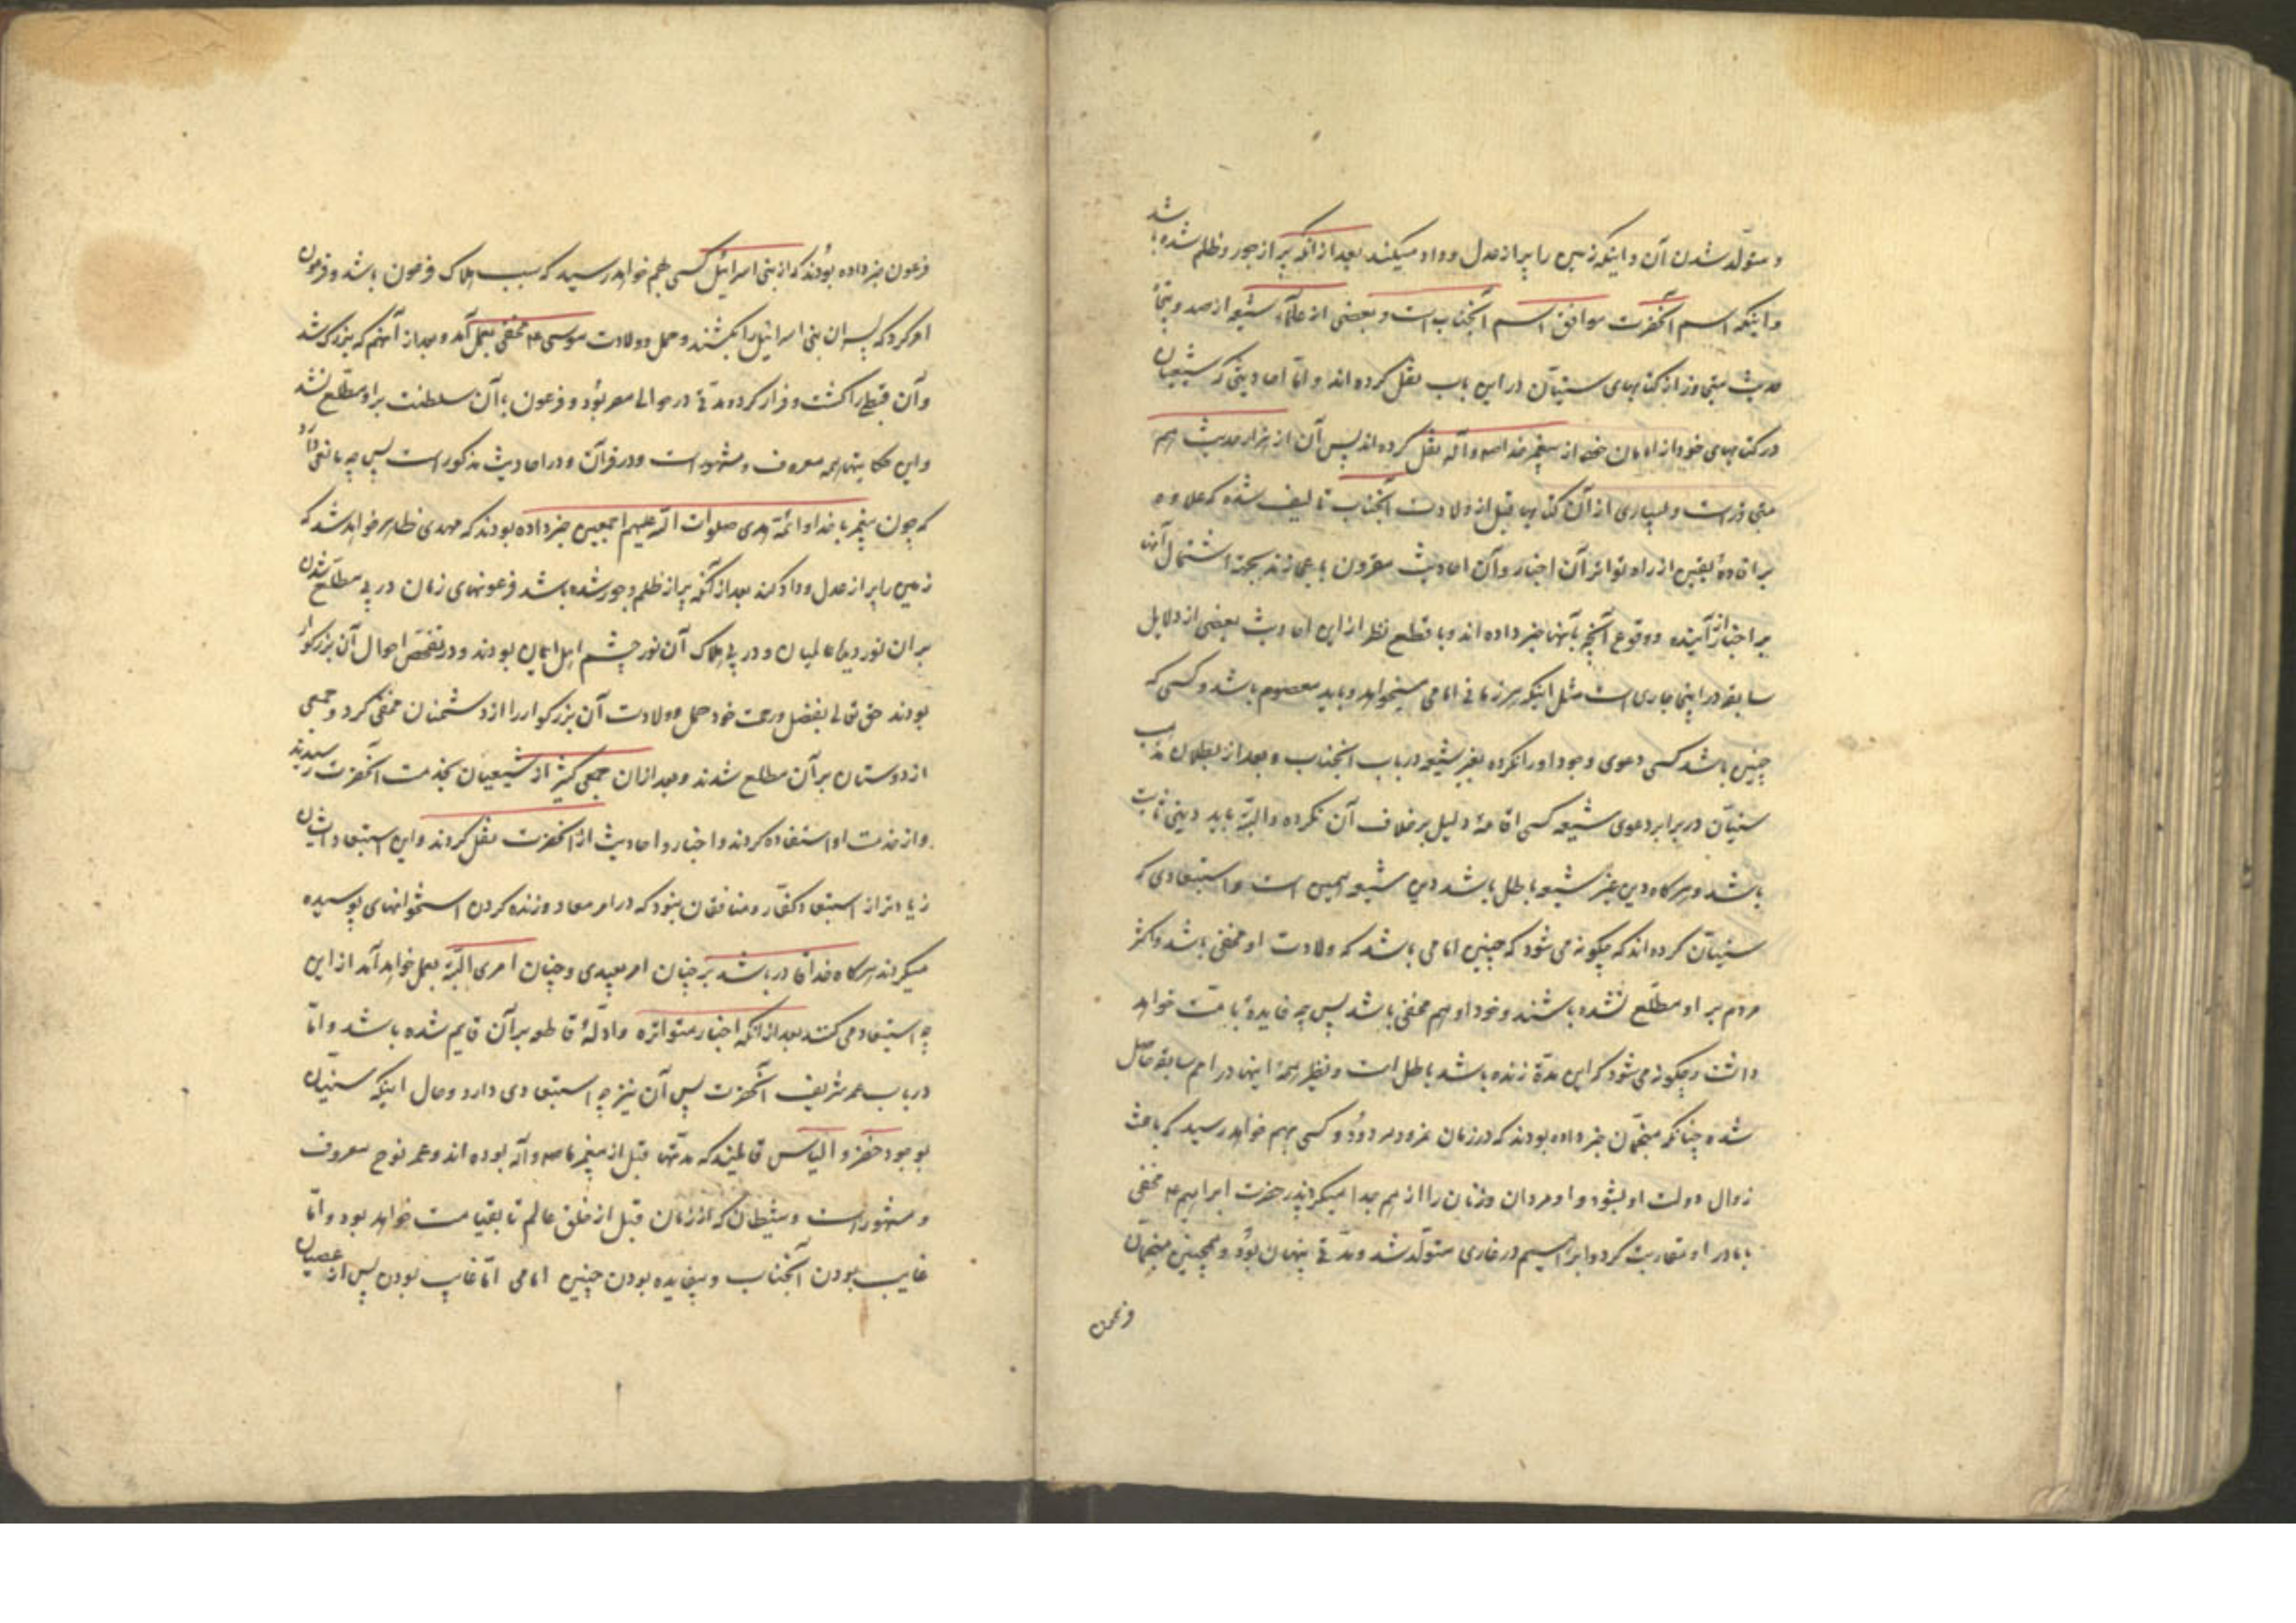 و متولد شدن آن و اینکه زمین را پر از عدل و داد میکند بعد از انکه پر از جور و ظلم شده باشد
و اینکه اسم انحضرت موافق اسم آنجناب است و بعضی از علماء شیعه از صد و پنجاه
حدیث متجاوز از کتابهای سنیان در این باب نقل کرده اند و امّا احادیثی که شیعیان
در کتابهای خود از امامان خود از پیغمبر خدا صه و آله نقل کرده اند پس آن از هزار حدیث هم
متجاوز است و بسیاری از آن کتابها قبل از ولادت آنجناب تالیف شده که علاوه
بر افادهٔ یقین از راه تواتر آن اخبار و آن احادیث مقرون باعجازند بجهة اشتمال آنها
بر اخبار از آینده و وقوع آنچه بآنها خبر داده اند و با قطع نظر از این احادیث بعضی از دلایل
سابقه در اینجا جاری است مثل اینکه هر زمانی امامی میخواهد و باید معصوم باشد و کسی که
چنین باشد کسی دعوی وجود او را نکرده بغیر شیعه در باب انجناب و بعد از بطلان مذهب
سنیّان در برابر دعوی شیعه کسی اقامهٔ دلیل بر خلاف آن نکرده و البتّه باید دینی ثابت
باشد و هرگاه دین غیر شیعه باطل باشد دین شیعه همین است و استبعادی که
سنیّان کرده اند که چگونه می شود که چنین امامی باشد که ولادت او مخفی باشد و اکثر
مردم بر او مطّلع نشده باشند و خود او هم مخفی باشد پس چه فایدهٔ بامّت خواهد
داشت و چگونه می شود که این مدّة زنده باشد باطل است و نظیر همهٔ اینها در امم سابقه حاصل
شده چنانکه منجّمان خبر داده بودند که در زمان نمرود مردود کسی بهم خواهد رسید که باعث
زوال دولت او بشود و او مردان و زنان را از هم جدا میکرد پدر حضرت ابراهیم ع مخفی
با مادر او مقاربت کرد و ابراهیم در غاری متولّد شد و مدّتی پنهان بود و همچنین منجّمان
فرعون خبر داده بودند که از بنی اسرائیل کسی بهم خواهد رسید که سبب هلاک فرعون باشد و فرعون
امر کرد که پسران بنی اسرائیل را بکشند و حمل و ولادت موسی ع مخفی بعمل آمد و بعد از آنهم که بزرک شد
و آن قبطی را کشت و فرار کرد و مدّتی در حوالی مصر بود و فرعون با آن سلطنت بر او مطّلع نشد
و این حکایتها همه معروف و مشهور است و در قرآن و در احادیث مذکور است پس چه مانعی دارد
که چون پیغمبر خدا و ائمّهٔ هدی صلوات الله علیهم اجمعین خبر داده بودند که مهدی ظاهر خواهد شد که
زمین را پر از عدل و داد کند بعد از آنکه پر از ظلم و جور شده باشد فرعونهای زمان در پی مطّلع شدن
بر ان نور دیدهٔ عالمیان و در پی هلاک آن نور چشم اهل ایمان بودند و در تفحّص احوال آن بزرکوار
بودند حق تعالی بفضل و رحمت خود حمل و ولادت آن بزرکوار را از دشمنان مخفی کرد و جمعی
از دوستان بر آن مطلع شدند و بعد از ان جمعی کثیر از شیعیان بخدمت انحضرت رسیدند
و از خدمت او استفاده کردند و اخبار و احادیث از انحضرت نقل کردند و این استبعاد ایشان
زیادتر از استبعاد کفّار و منافقان نبود که در امر معاد و زنده کردن استخوانهای پوسیده
میکردند هرگاه خدا قادر باشد بر چنان امر بعیدی و چنان امری البتّه بعمل خواهد آمد از این
چه استبعاد می کنند بعد از انکه اخبار متواتره و ادلّهٔ قاطعه بر آن قایم شده باشد و امّا
در باب عمر شریف آنحضرت پس آن نیز چه استبعادی دارد و حال اینکه سنیّان
بوجود خضر و الیاس قایلند که مدّتها قبل از پیغمبر ما صه و آله بوده اند و عمر نوح معروف
و مشهور است و شیطان که از زمان قبل از خلق عالم تا بقیامت خواهد بود و امّا
غایب بودن آنجناب و بیفایده بودن چنین امامی امّا غایب بودن پس از عصیان